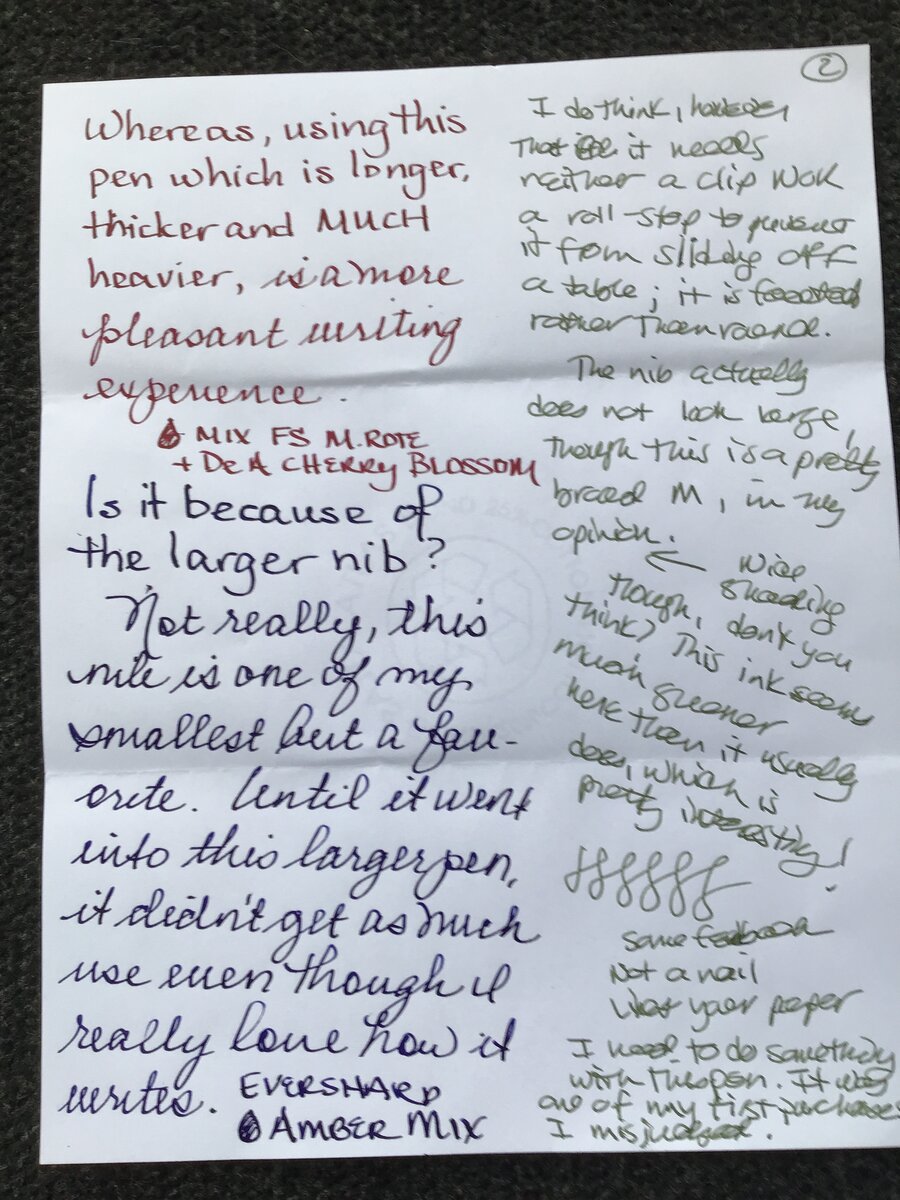 2
Whereas, using this
pen which is longer,
thicker and MUCH
heavier, is a more
pleasant writing
experience.
MIX FS M. ROTE
+ De A CHERRY BLOSSOM
Is it because of
the larger nib?
Not really, this
nib is one of my
smallest but a fav-
orite. Until it went
into this larger pen,
it didn't get as much
use even though I
really love how it
writes. EVERSHARP
AMBER MIX
I do think, however
That it needs
neither a clip NOR
a roll-stop to prevent
it from sliding off
a table; it is faceted
rather than round.
The nib actually
does not look large,
though this is a pretty
broad M, in my
opinion.
← Wild
shading
though, don't you
think? This ink seems
much greener
here than it usually
does, which is
pretty interesting!
Some feedback
Not a nail
Likes your paper
I need to do something
with this pen. It was
one of my first purchases
I misjudged.